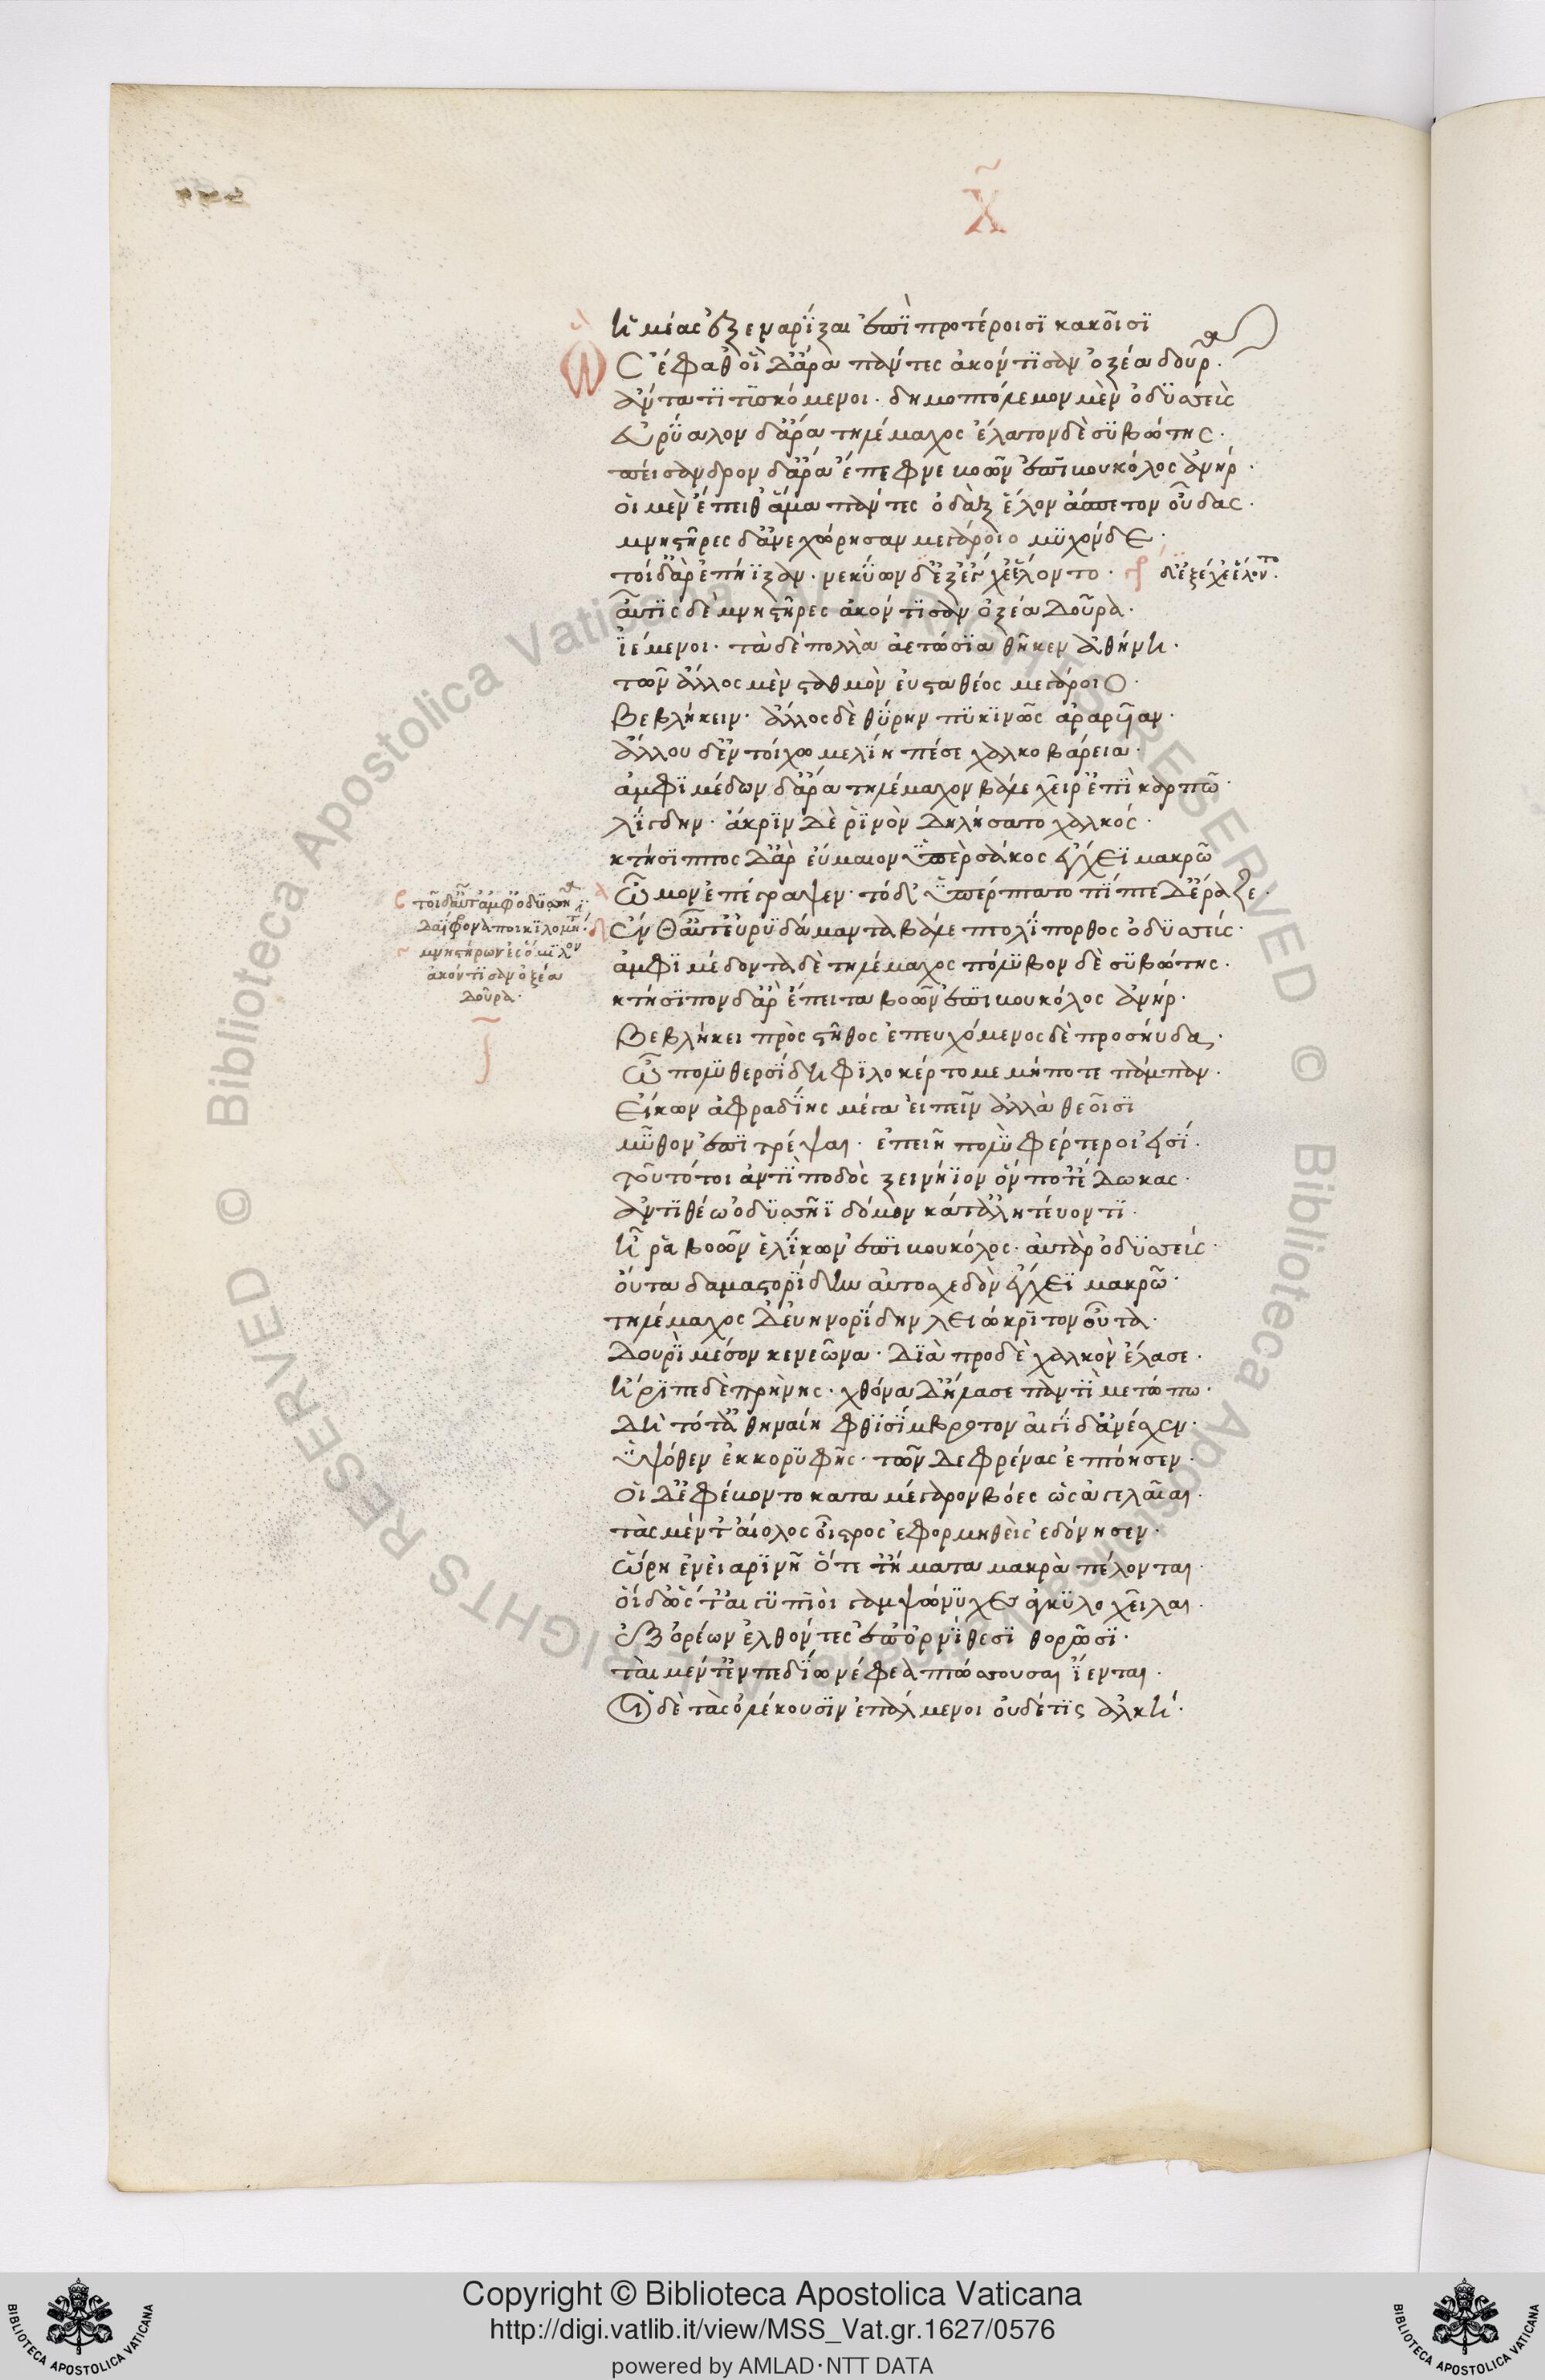 χ̃
ἡμέας ἐξεναρίξαι ἐπὶ προτέροισι κακοῖσι
Ὣς ἔφαθ' οἱ δ' ἄρα πάντες ἀκόντισαν ὀξέα δοῦρα.
ἄντα τιτϊσκόμενοι· δημοπόλεμον μὲν ὀδϋσσεὺς
ἐυρύαλον δ' ἄρα τηλέμαχος ἔλατον δὲ συβώτης·
πείσανδρον δ' ἄρα ἔπεφνε βοῶν ἐπιβουκόλος ἀνήρ·
οἱ μὲν ἔπειθ' ἅμα πάντες ὀδὰξ ἕλον ἄσπετον οὖδας·
μνηστῆρες δ' ἀνεχώρησαν μεγάροιο μυχόνδε·
τοὶ δ' ἄρ' ἐπήϊξαν· νεκύων δ' ἐξ ἔγχε' ἕλοντο·
γρ δ' ἐξ ἔγχε' ἕλοντο.
αὖτις δὲ μνηστῆρες ἀκόντισαν ὀξέα δοῦρα·
ἱέμενοι· τὰ δὲ πολλὰ ἐτώσια θῆκεν ἀθήνη·
τῶν ἄλλος μὲν σταθμὸν ἐυσταθέος μεγάροιο·
βεβλήκειν· ἄλλος δὲ θύρην πυκινῶς ἀραρυῖαν·
ἄλλου δ' ἐν τοίχω μελίη πέσε χαλκοβάρεια·
ἀμφιμέδων δ' ἄρα τηλέμαχον βάλε χεῖρ' ἐπὶ καρπῶ·
λίγδην· ἄκριν δὲ ῥινὸν δηλήσατο χαλκός·
κτήσιππος δ' ἄρ' εὔμαιον ὑπὲρ σάκος ἔγχεϊ μακρῶ
ὦμον ἐπέγραψεν· τὸ δ' ὑπέρπτατο πίπτε δ' ἔραζε·
τοὶ δ' αὖτ' ἀμφ' ὀδυσῆα
δαΐφρονα ποικιλομήτην·
μνηστήρων ἐς ὅμιλον
ἀκόντισαν ὀξέα
δοῦρα·
ἔνθ' αὖτ' εὐρυδάμαντα βάλε πτολίπορθος ὀδυσσεύς·
ἀμφιμέδοντα δὲ τηλέμαχος πόλυβον δὲ συβώτης·
κτήσιπον δ' ἄρ' ἔπειτα βοῶν ἐπιβουκόλος ἀνήρ·
βεβλήκει πρὸς στῆθος ἐπευχόμενος δὲ προσηύδα·
ὦ πολυθερσίδη φιλοκέρτομε μήποτε πάμπαν·
εἴκων ἀφραδίης μέγα εἰπεῖν ἀλλὰ θεοῖσι
μῦθον ἐπιτρέψαι· ἐπειῆ πολὺ φέρτεροι εἰσί·
τοῦτό τοι ἀντὶ ποδὸς ξεινήϊον ὅν ποτ' ἔδωκας·
ἀντιθέω ὀδυσῆϊ δόμον κάτ' ἀλητεύοντι·
ἦ ῥα βοῶν ἑλίκων ἐπιβουκόλος· αὐτὰρ ὀδυσσεύς·
οὖτα δαμαστορίδην αὐτοσχεδὸν ἔγχεϊ μακρῶ·
τηλέμαχος δ' εὐηνορίδην λειώκριτον οὖτα·
δουρὶ μέσον κενεῶνα· διὰ προ δὲ χαλκὸν ἔλασε·
ἤριπε δὲ πρηνης· χθόνα δ' ἤλασε παντὶ μετώπω·
δὴ τότ' ἀθηναίη φθισίμβροτον αἰγίδ' ἀνέσχεν·
ὑψόθεν ἐκ κορυφῆς· τῶν δε φρένας ἐπτόησεν·
οἱ δ' ἐφέβοντο κατα μέγαρον βόες ὡς ἀγελαῖαι·
τὰς μέν τ' αἰόλος οἶστρος ἐφορμηθεὶς ἐδόνησεν·
ὥρη ἐν εἰαρινῆ ὅτε τ' ἤματα μακρὰ πέλονται·
οἱ δ' ὥς τ' αἰγυπιοὶ γαμψώνυχες ἀγκυλοχεῖλαι·
ἐξ ὀρέων ἐλθόντες ἐπ' ὀρνίθεσι θορῶσι·
ταὶ μέν τ' ἐν πεδίω νέφεα πτώσσουσαι ἵενται·
οἱ δὲ τὰς ὀλέκουσιν ἐπάλμενοι οὐδέ τις ἀλκή·
Copyright © Biblioteca Apostolica Vaticana
http://digi.vatlib.it/view/MSS_Vat.gr.1627/0576
powered by AMLAD·NTT DATA